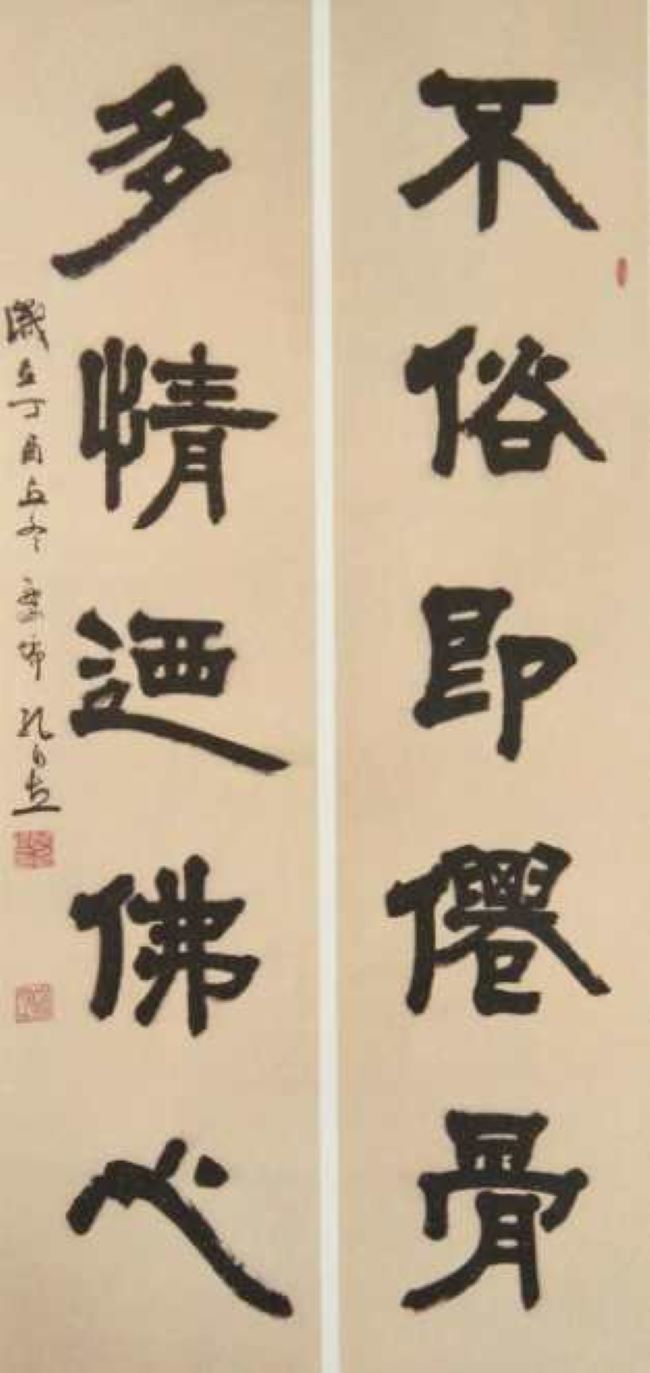 不俗即僊骨
多情迺佛心
歲在丁酉立冬